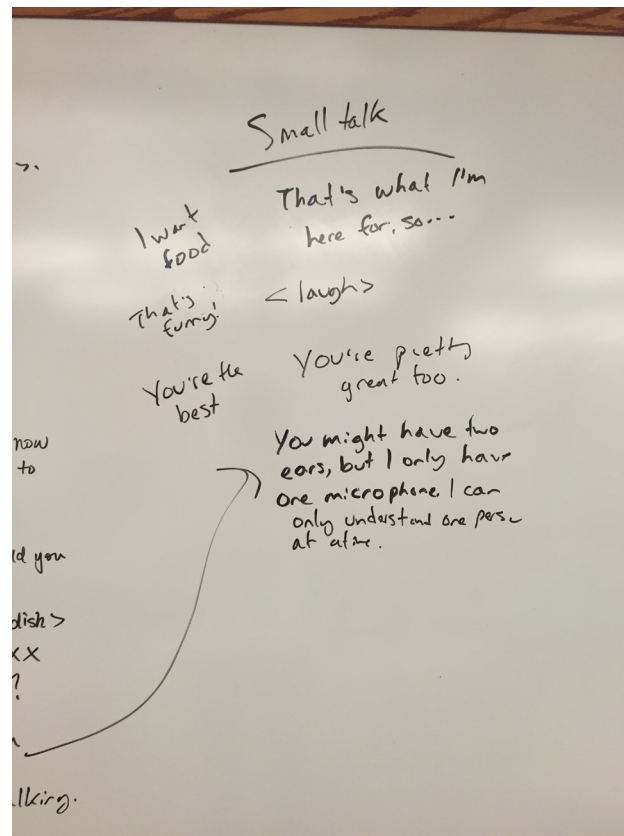 Small talk
I want
food
That's what I'm
here for, so...
That's
funny!
<laugh>
You're the
best
You're pretty
great too.
You might have two
ears, but I only have
one microphone. I can
only understand one
at a time.
now
to
you
dish>
xx
?
lking.